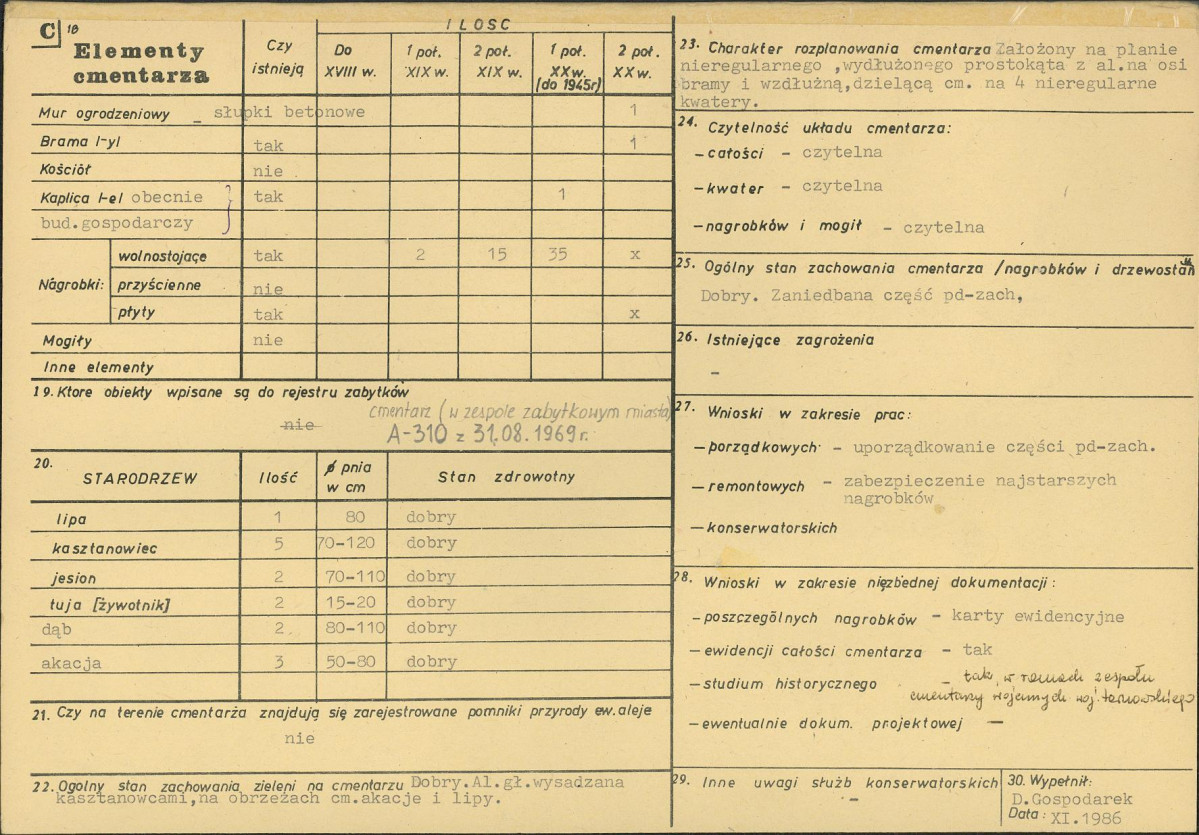 C 18
Elementy
cmentarza
Czy
istnieją
ILOSC
Do
XVIII w.
1 poł.
XIX w.
2 poł.
XIX w.
1 poł.
XX w.
(do 1945r)
2 poł.
XX w.
Mur ogrodzeniowy – słupki betonowe 1
Brama l-yl tak 1
Kościół nie
Kaplica l-el obecnie tak 1
bud.gospodarczy
Nagrobki:
wolnostojące tak 2 15 35 x
przyścienne nie
płyty tak x
Mogiły nie
Inne elementy
19. Ktore obiekty wpisane są do rejestru zabytków
nie cmentarz (w zespole zabytkowym miasta)
A-310 z 31.08.1969 r.
20. STARODRZEW Ilość ø pnia w cm Stan zdrowotny
lipa 1 80 dobry
kasztanowiec 5 70-120 dobry
jesion 2 70-110 dobry
tuja [żywotnik] 2 15-20 dobry
dąb 2 80-110 dobry
akacja 3 50-80 dobry
21. Czy na terenie cmentarza znajdują się zarejestrowane pomniki przyrody ew. aleje
nie
22. Ogolny stan zachowania zieleni na cmentarzu Dobry.Al.gł.wysadzana
kasztanowcami,na obrzeżach cm.akacje i lipy.
23. Charakter rozplanowania cmentarza Założony na planie
nieregularnego ,wydłużonego prostokąta z al.na osi
bramy i wzdłużną,dzielącą cm. na 4 nieregularne
kwatery.
24. Czytelność układu cmentarza:
– całości – czytelna
– kwater – czytelna
– nagrobków i mogił – czytelna
25. Ogólny stan zachowania cmentarza /nagrobków i drzewostanu
Dobry. Zaniedbana część pd-zach,
26. Istniejące zagrożenia
–
27. Wnioski w zakresie prac:
– porządkowych – uporządkowanie części pd-zach.
– remontowych – zabezpieczenie najstarszych
nagrobków
– konserwatorskich
28. Wnioski w zakresie niezbędnej dokumentacji:
– poszczególnych nagrobków – karty ewidencyjne
– ewidencji całości cmentarza – tak
– studium historycznego – tak, w ramach zespołu
cmentarzy wojennych woj. tarnowskiego
– ewentualnie dokum. projektowej –
29. Inne uwagi służb konserwatorskich
–
30. Wypełnił:
D.Gospodarek
Data: XI.1986